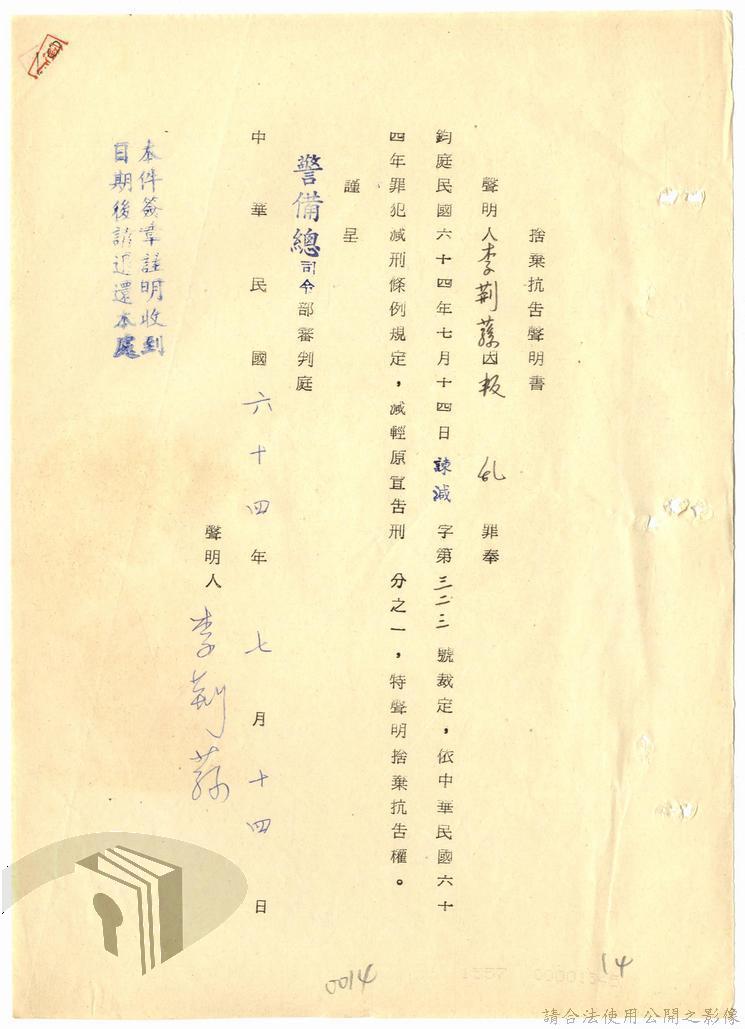 捨棄抗告聲明書
聲明人李荊蓀因叛亂罪奉
鈞庭民國六十四年七月十四日諫減字第三二三號裁定，依中華民國六十
四年罪犯減刑條例規定，減輕原宣告刑　分之一，特聲明捨棄抗告權。
謹呈
警備總司令部審判庭
中華民國六十四年七月十四日
聲明人　李荊蓀
本件簽章註明收到
日期後請迅還本處
0014
14
請合法使用公開之影像